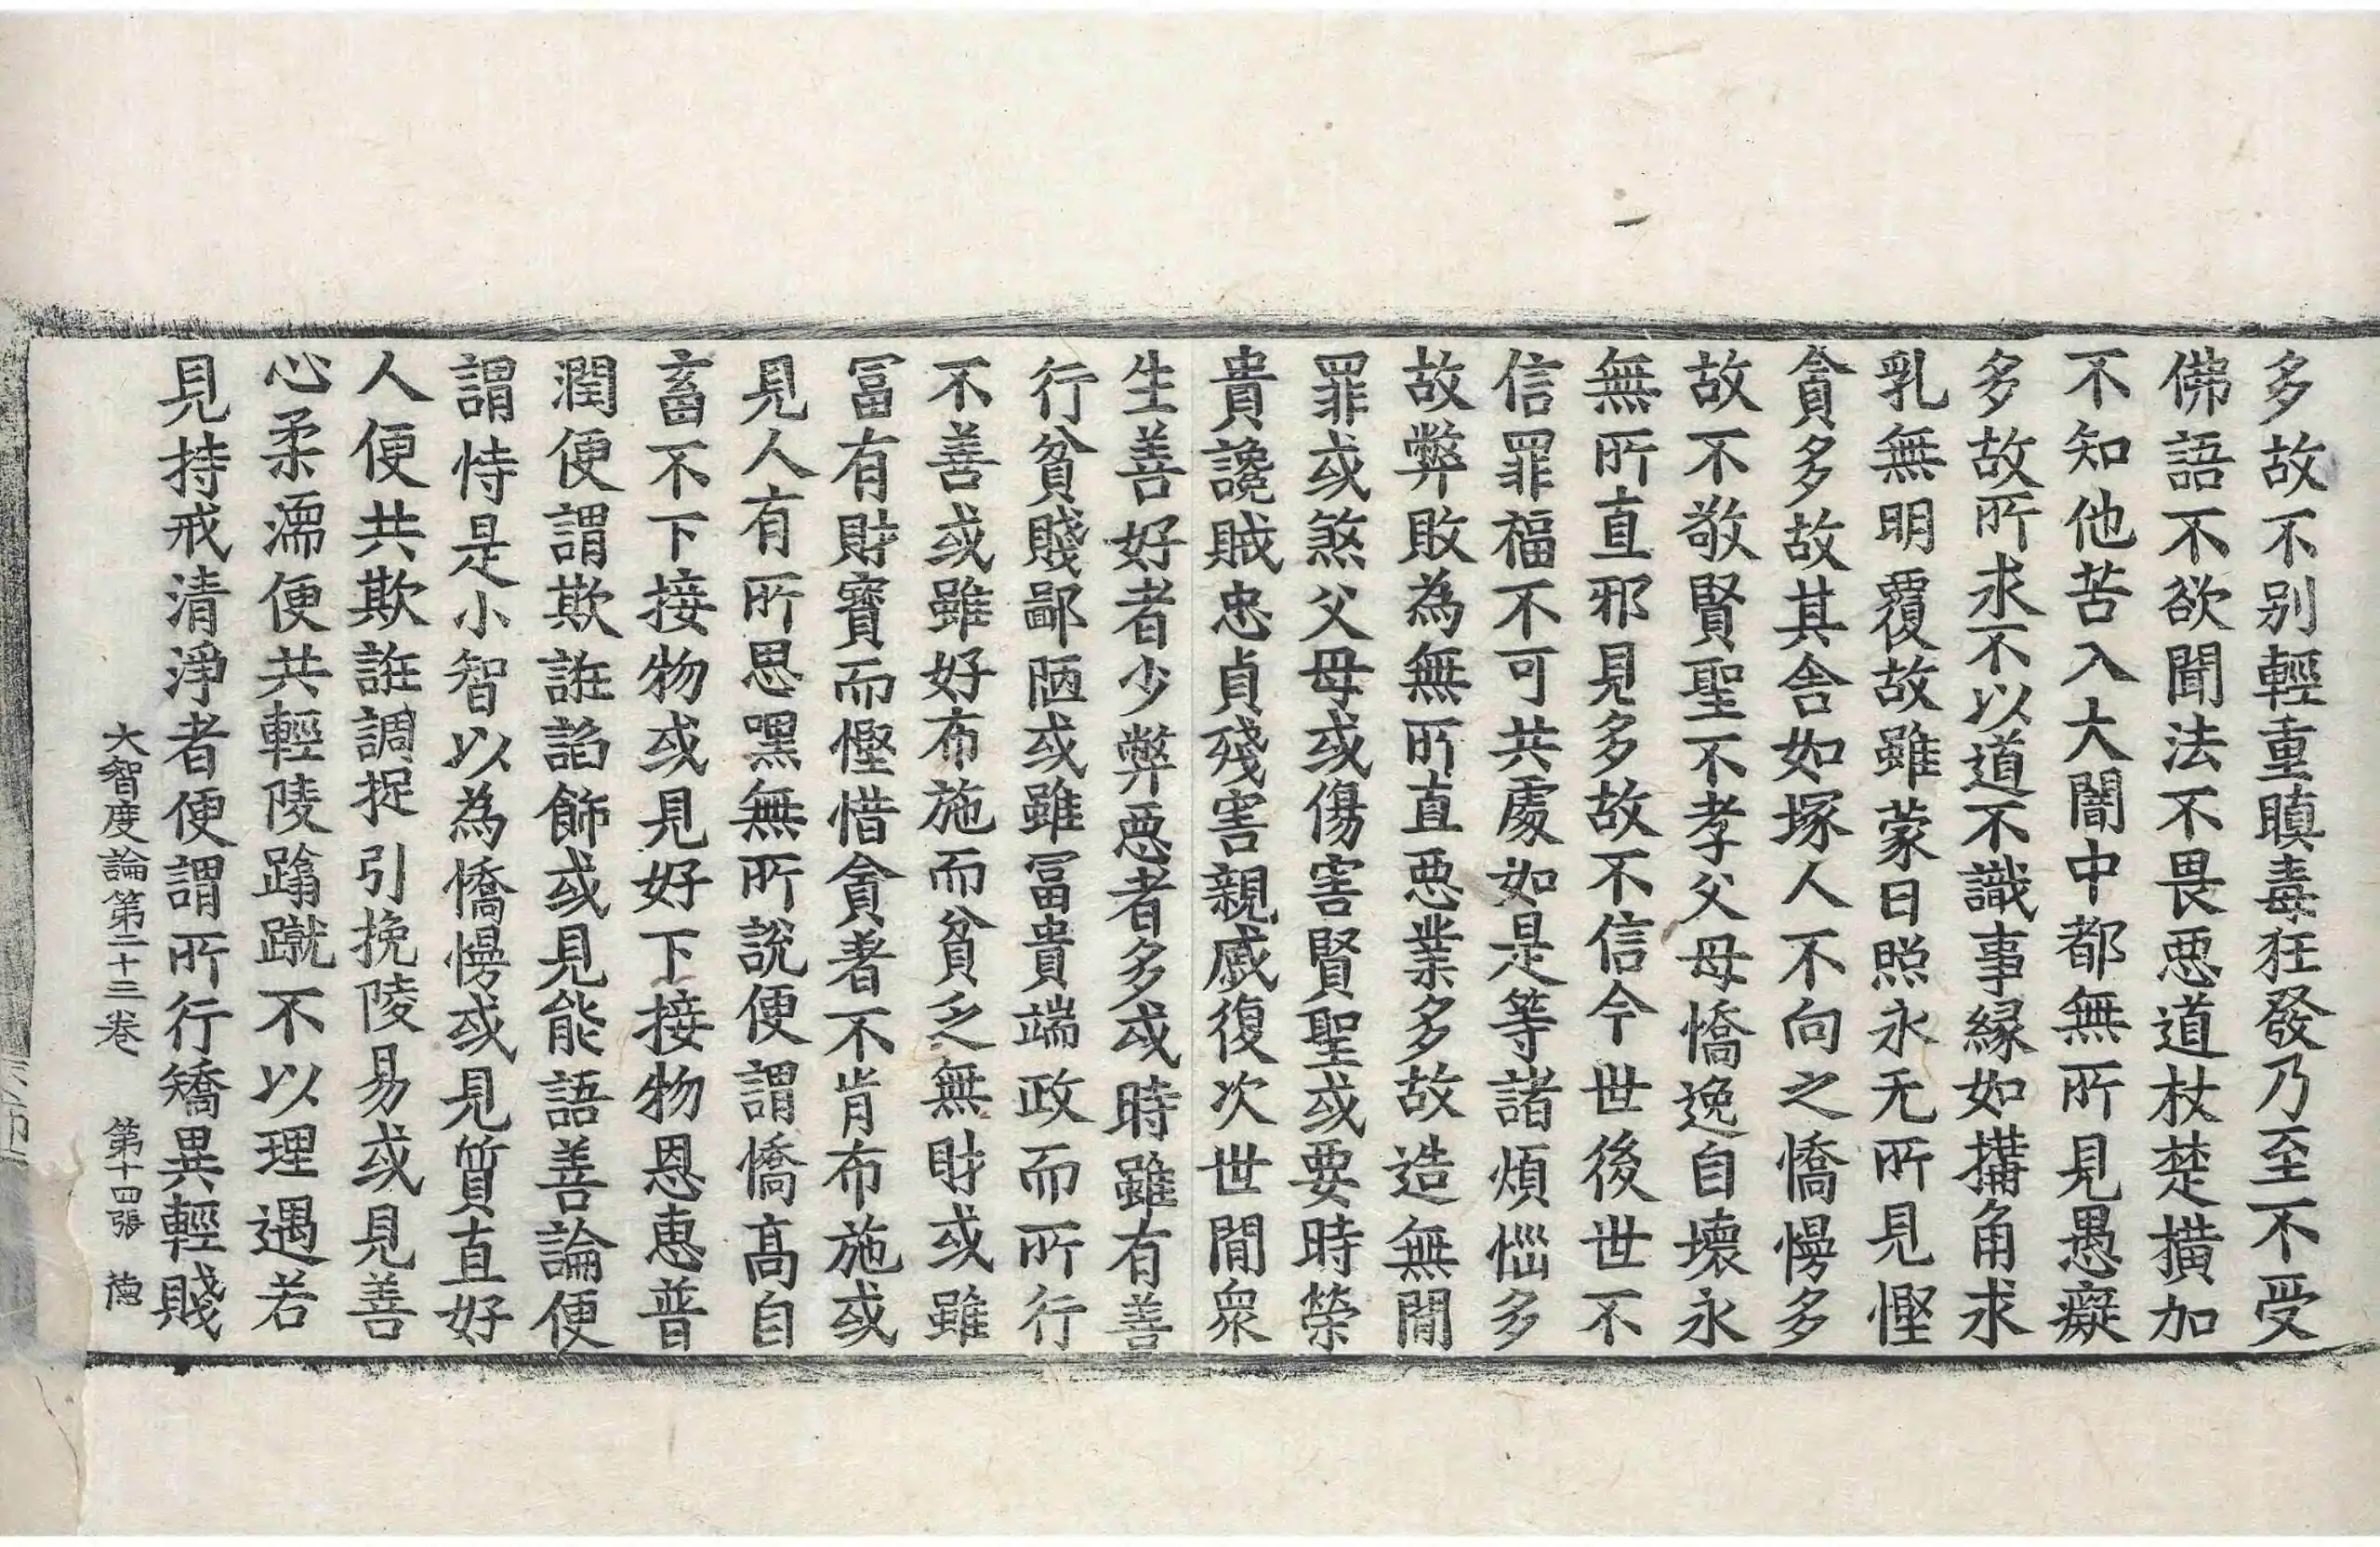 多故不別輕重瞋毒狂發乃至不受
佛語不欲聞法不畏惡道杖楚撗加
不知他苦入大闇中都無所見愚癡
多故所求不以道不識事縁如搆角求
乳無明覆故雖蒙日照永无所見慳
貪多故其舍如塚人不向之憍慢多
故不敬賢聖不孝父母憍逸自壞永
無所直邪見多故不信今世後世不
信罪福不可共處如是等諸煩惱多
故弊敗為無所直惡業多故造無間
罪或煞父母或傷害賢聖或要時榮
貴讒賊忠貞殘害親戚復次世間衆
生善好者少弊惡者多或時雖有善
行貧賤鄙陋或雖冨貴端政而所行
不善或雖好布施而貧乏無財或雖
冨有財寶而慳惜貪著不肯布施或
見人有所思嘿無所說便謂憍高自
畜不下接物或見好下接物恩惠普
潤便謂欺誑諂飾或見能語善論便
謂恃是小智以為憍慢或見質直好
人便共欺誑調捉引挽陵易或見善
心柔濡便共輕陵蹹蹴不以理遇若
見持戒清淨者便謂所行矯異輕賤
大智度論第二十三卷 第十四張 徳